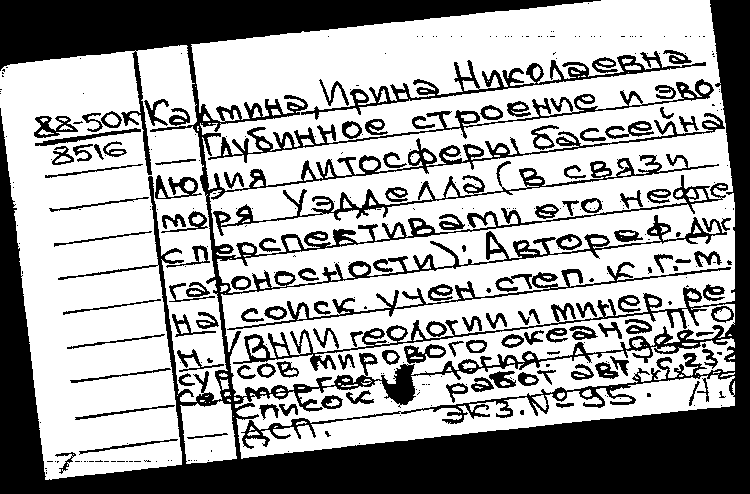 88-50к
8516
Кадмина, Ирина Николаевна
Глубинное строение и эво-
люция литосферы бассейна
моря Уэдделла (в связи
с перспективами его нефте
газоносности): Автореф. дис.
на соиск. учен. степ. к. г.-м.
н. /ВНИИ геологии и минер. ре-
сурсов мирового океана ПГО
Севморгео логия.-Л. 1988-
Список работ авт.: с. 23-2
Дсп. экз. №95.
7